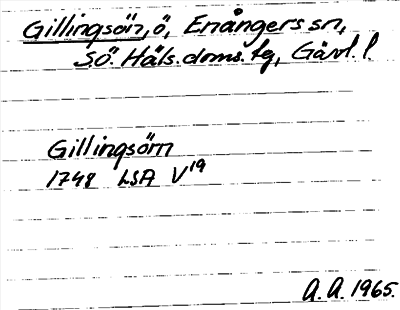 Gillingsön, ö, Enångers sn,
Sö. Häls. doms. tg, Gävl. l.
Gillingsörn
1748 LSA V19
A. A. 1965.